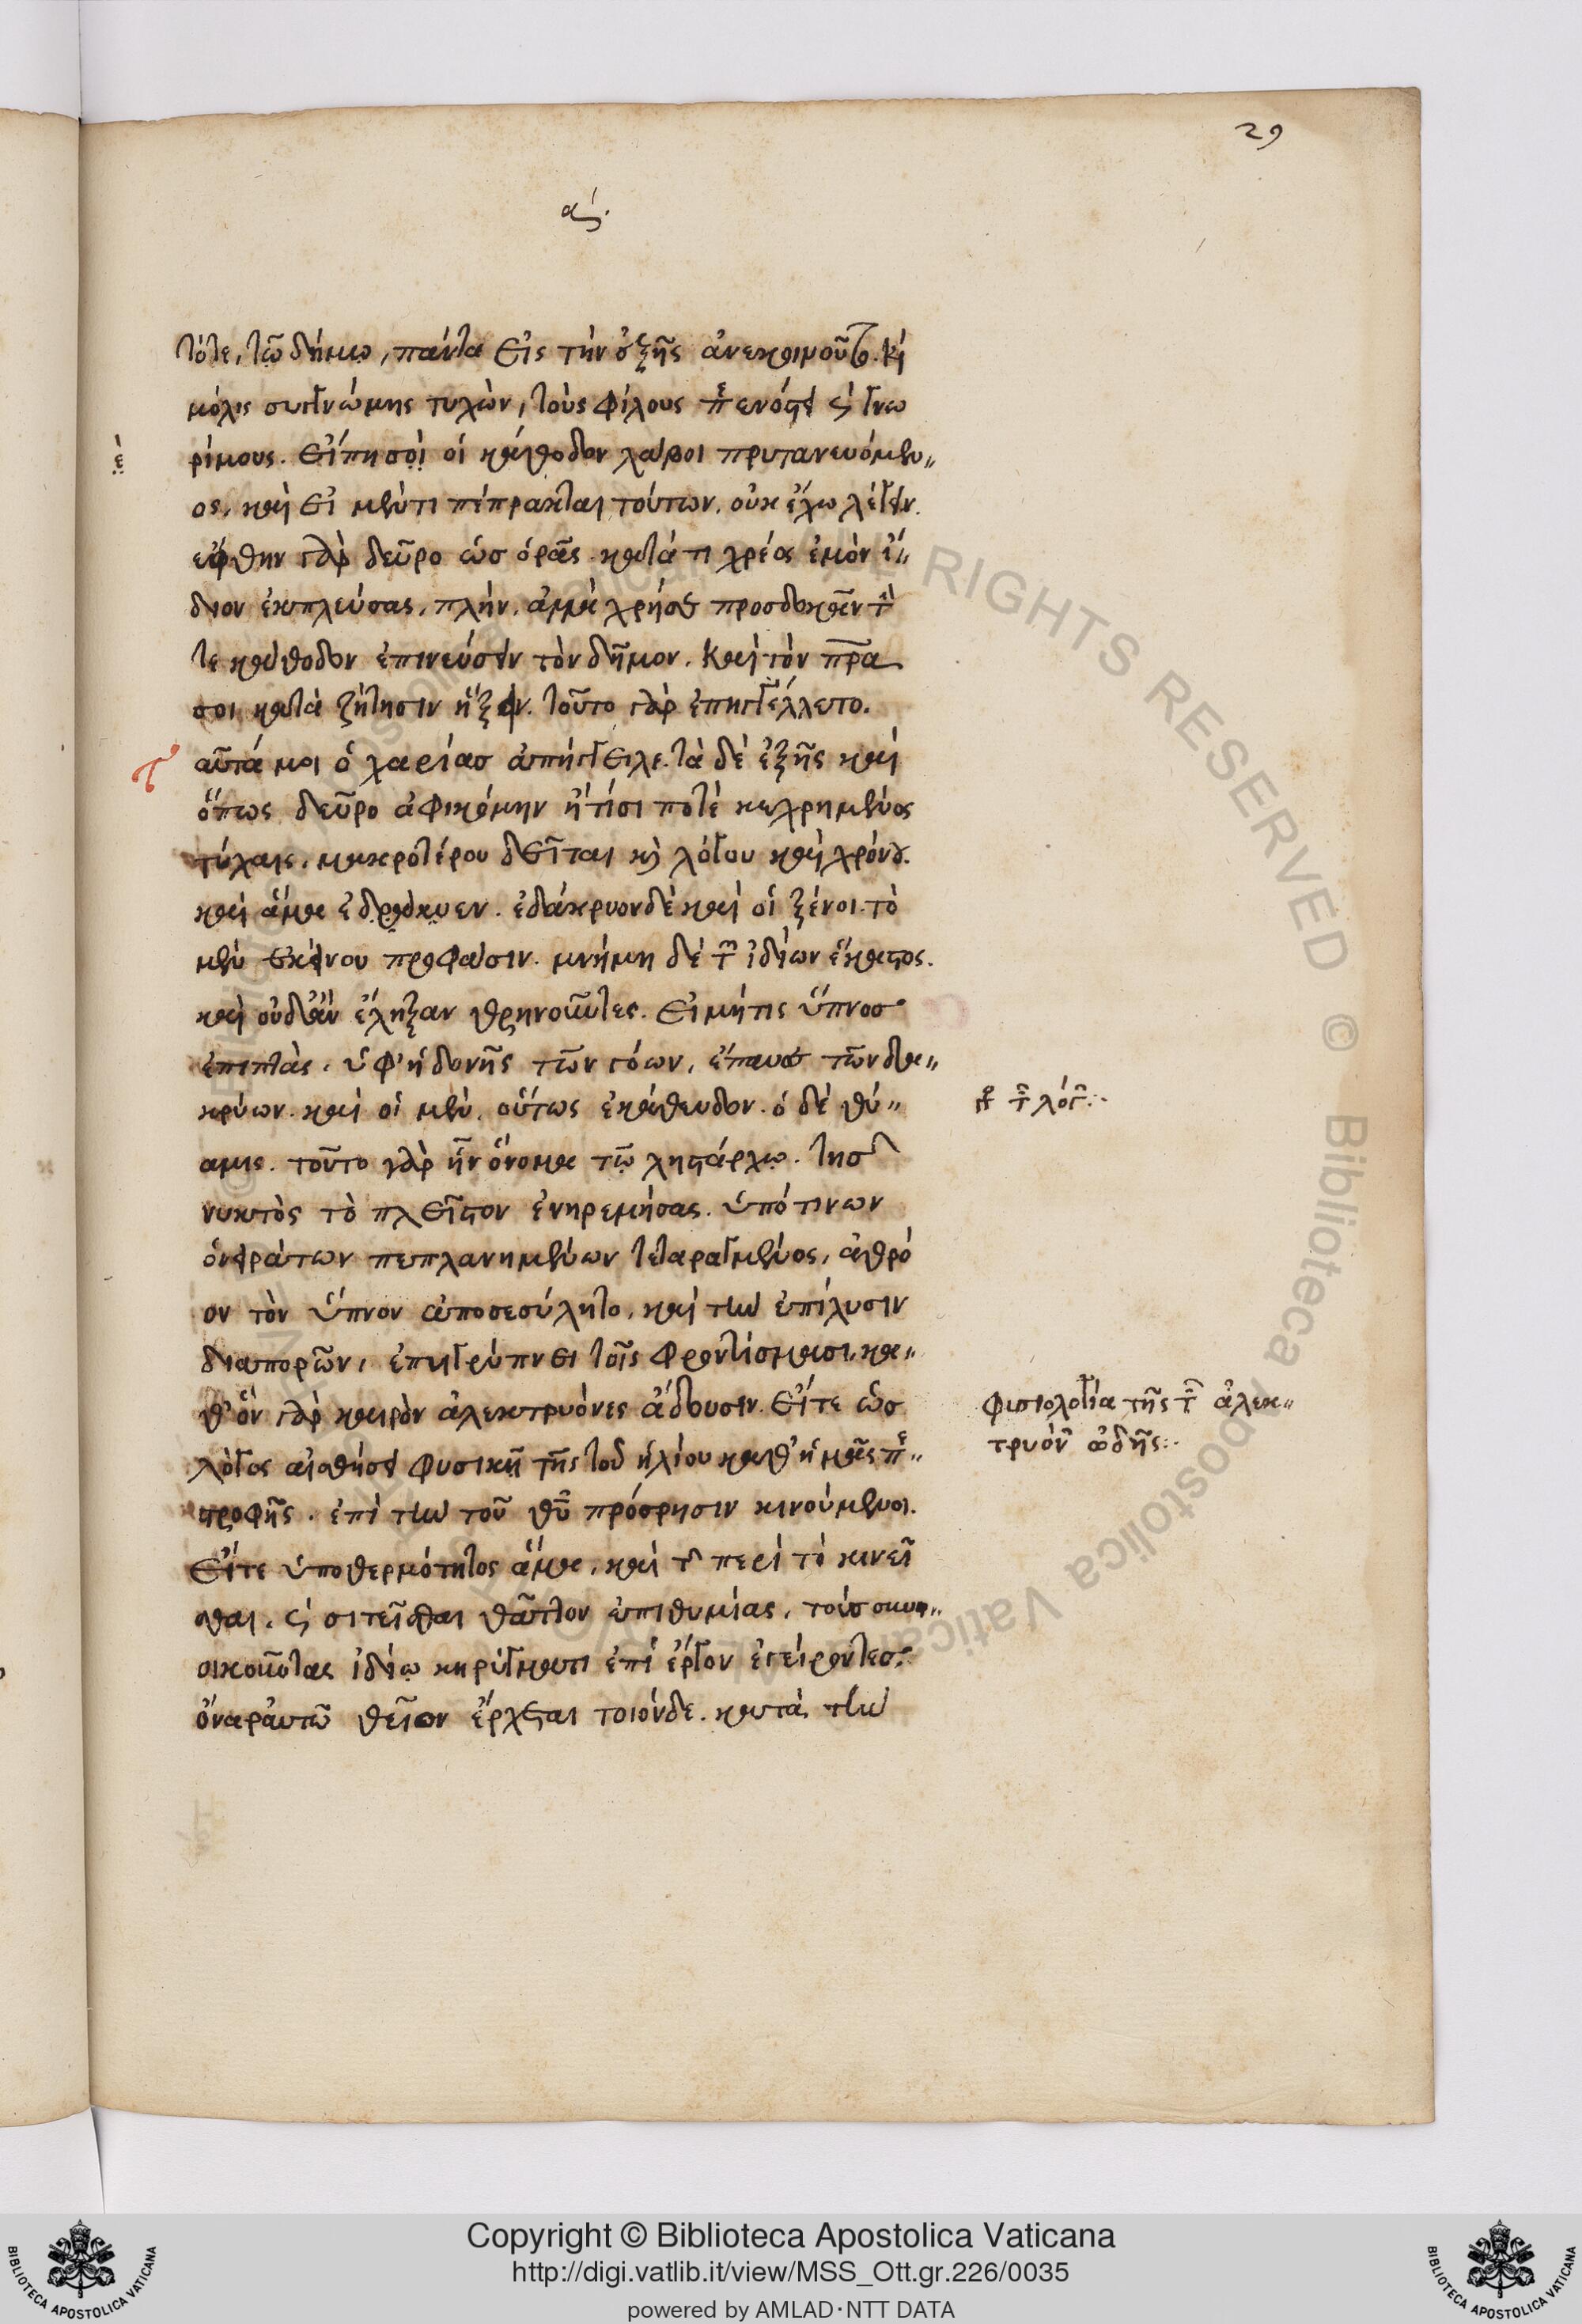 29
α΄.
τότε, τῷ δήμῳ, πάντα εἰς τὴν ὀξῆς ἀνεκοινοῦτο. καὶ
μόλις συγγνώμης τυχὼν, τοὺς φίλους περιενόστει καὶ γνω
ρίμους. εἴπῃ σοὶ οἱ κάθοδον λάβοι πρυτανευόμεν„
ος, καὶ εἰ μέν τι πέπρακται τούτων, οὐκ ἔχω λέγειν.
ἔφθην γὰρ δεῦρο ὡς ὁρᾷς κατά τι χρέος ἐμὸν ἴ„
διον ἐκπλεύσας, πλὴν, ἀλλὰ χρῆσαι προσδοκᾶν τήν
τε κάθοδον ἐπινεύσειν τὸν δῆμον, καὶ τὸν πρα
σοι κατὰ ζήτησιν ἥξειν. τοῦτο γὰρ ἐπηγγέλλετο.
αῦτά μοι ὁ χαρίας ἀπήγγειλε. τὰ δὲ ἑξῆς καὶ
ὅπως δεῦρο ἀφικόμην ἢ τίσι ποτὲ κεχρημένος
τύχαις, μακροτέρου δεῖται καὶ λόγου καὶ χρόνου.
καὶ ἅμα ἐδάκρυεν. ἐδάκρυον δὲ καὶ οἱ ξένοι. τὸ
μὲν ἐκείνου πρόφασιν. μνήμῃ δὲ τῶν ἰδίων ἕκαστος.
καὶ οὐδ' ἂν ἔληξαν θρηνοῦντες. εἰ μή τις ὕπνος
ἐπιπτὰς, ὑφ' ἡδονῆς τῶν γόων, ἔπαυσε τῶν δα„
κρύων. καὶ οἱ μὲν, οὕτως ἐκάθευδον. ὁ δὲ θύ„
αμις. τοῦτο γὰρ ἦν ὄνομα τῷ λῃστάρχῳ. τῆς
νυκτὸς τὸ πλεῖστον ἐνηρεμήσας. ὑπό τινων
ὀνειράτων πεπλανημένων τεταραγμένος, ἀθρό
ον τὸν ὕπνον ἀποσεσύλητο, καὶ τὴν ἐπίλυσιν
διαπορῶν, ἐπηγρύπνει τοῖς φροντίσμασι, κα„
θ' ὃν γὰρ καιρὸν ἀλεκτρυόνες ἄδουσιν. εἴτε ὡς
λόγος αἰσθήσει φυσικῇ τῆς τοῦ ἡλίου καθ' ἡμᾶς περι„
στροφῆς. ἐπὶ τὴν τοῦ θεοῦ πρόσρησιν κινούμενοι.
εἴτε ὑπο θερμότητος ἅμα, καὶ τῆς περὶ τὸ κινεῖ
σθαι, καὶ σιτεῖσθαι θᾶττον ἐπιθυμίας, τοὺς συν„
οικοῦντας ἰδίῳ κηρύγματι ἐπὶ ἔργον ἐγείροντες.
ὄναρ αὐτῷ θεῖον ἔρχεται τοιόνδε. κατὰ τὴν
περὶ τῶν λόγων:·
φυσιολογία τῆς τῶν ἀλεκ„
τρυόνων ᾠδῆς:·
Copyright © Biblioteca Apostolica Vaticana
http://digi.vatlib.it/view/MSS_Ott.gr.226/0035
powered by AMLAD·NTT DATA
BIBLIOTECA APOSTOLICA VATICANA
BIBLIOTECA APOSTOLICA VATICANA